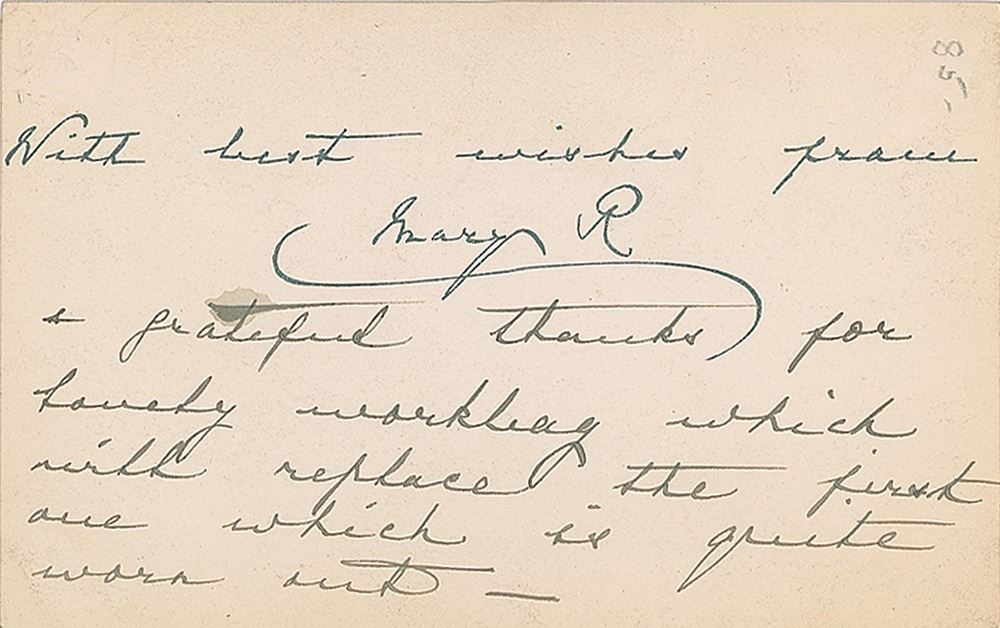 With best wishes from
Mary R
& grateful thanks for
lovely workbag which
will replace the first
one which is quite
worn out —
58-